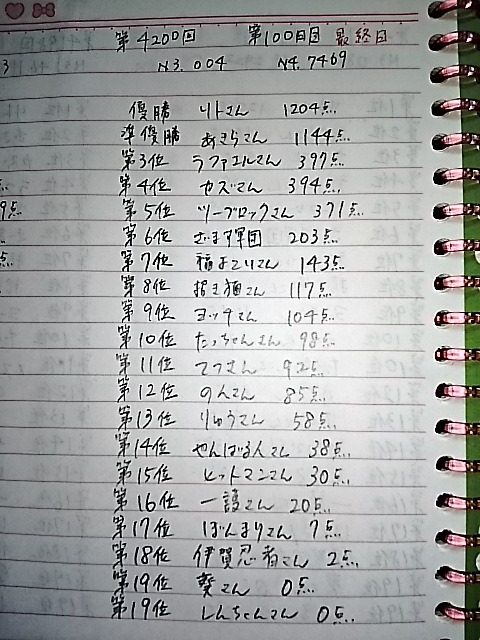 第4200回 第100回目 最終日
N3.004 N4.7469
優勝 リトさん 1204点..
準優勝 あきらさん 1144点..
第3位 ラファエルさん 397点..
第4位 カズさん 394点..
第5位 ツーブロックさん 371点..
第6位 ざます軍団 203点..
第7位 福よこいさん 143点..
第8位 招き猫さん 117点..
第9位 ヨッチさん 104点..
第10位 たっちゃんさん 98点..
第11位 てつさん 92点..
第12位 のんさん 85点..
第13位 りゅうさん 58点..
第14位 やんばる人さん 38点..
第15位 ヒットマンさん 30点..
第16位 一護さん 20点..
第17位 ぽんまりさん 7点..
第18位 伊賀忍者さん 2点..
第19位 葵さん 0点..
第19位 しんちゃんさん 0点..